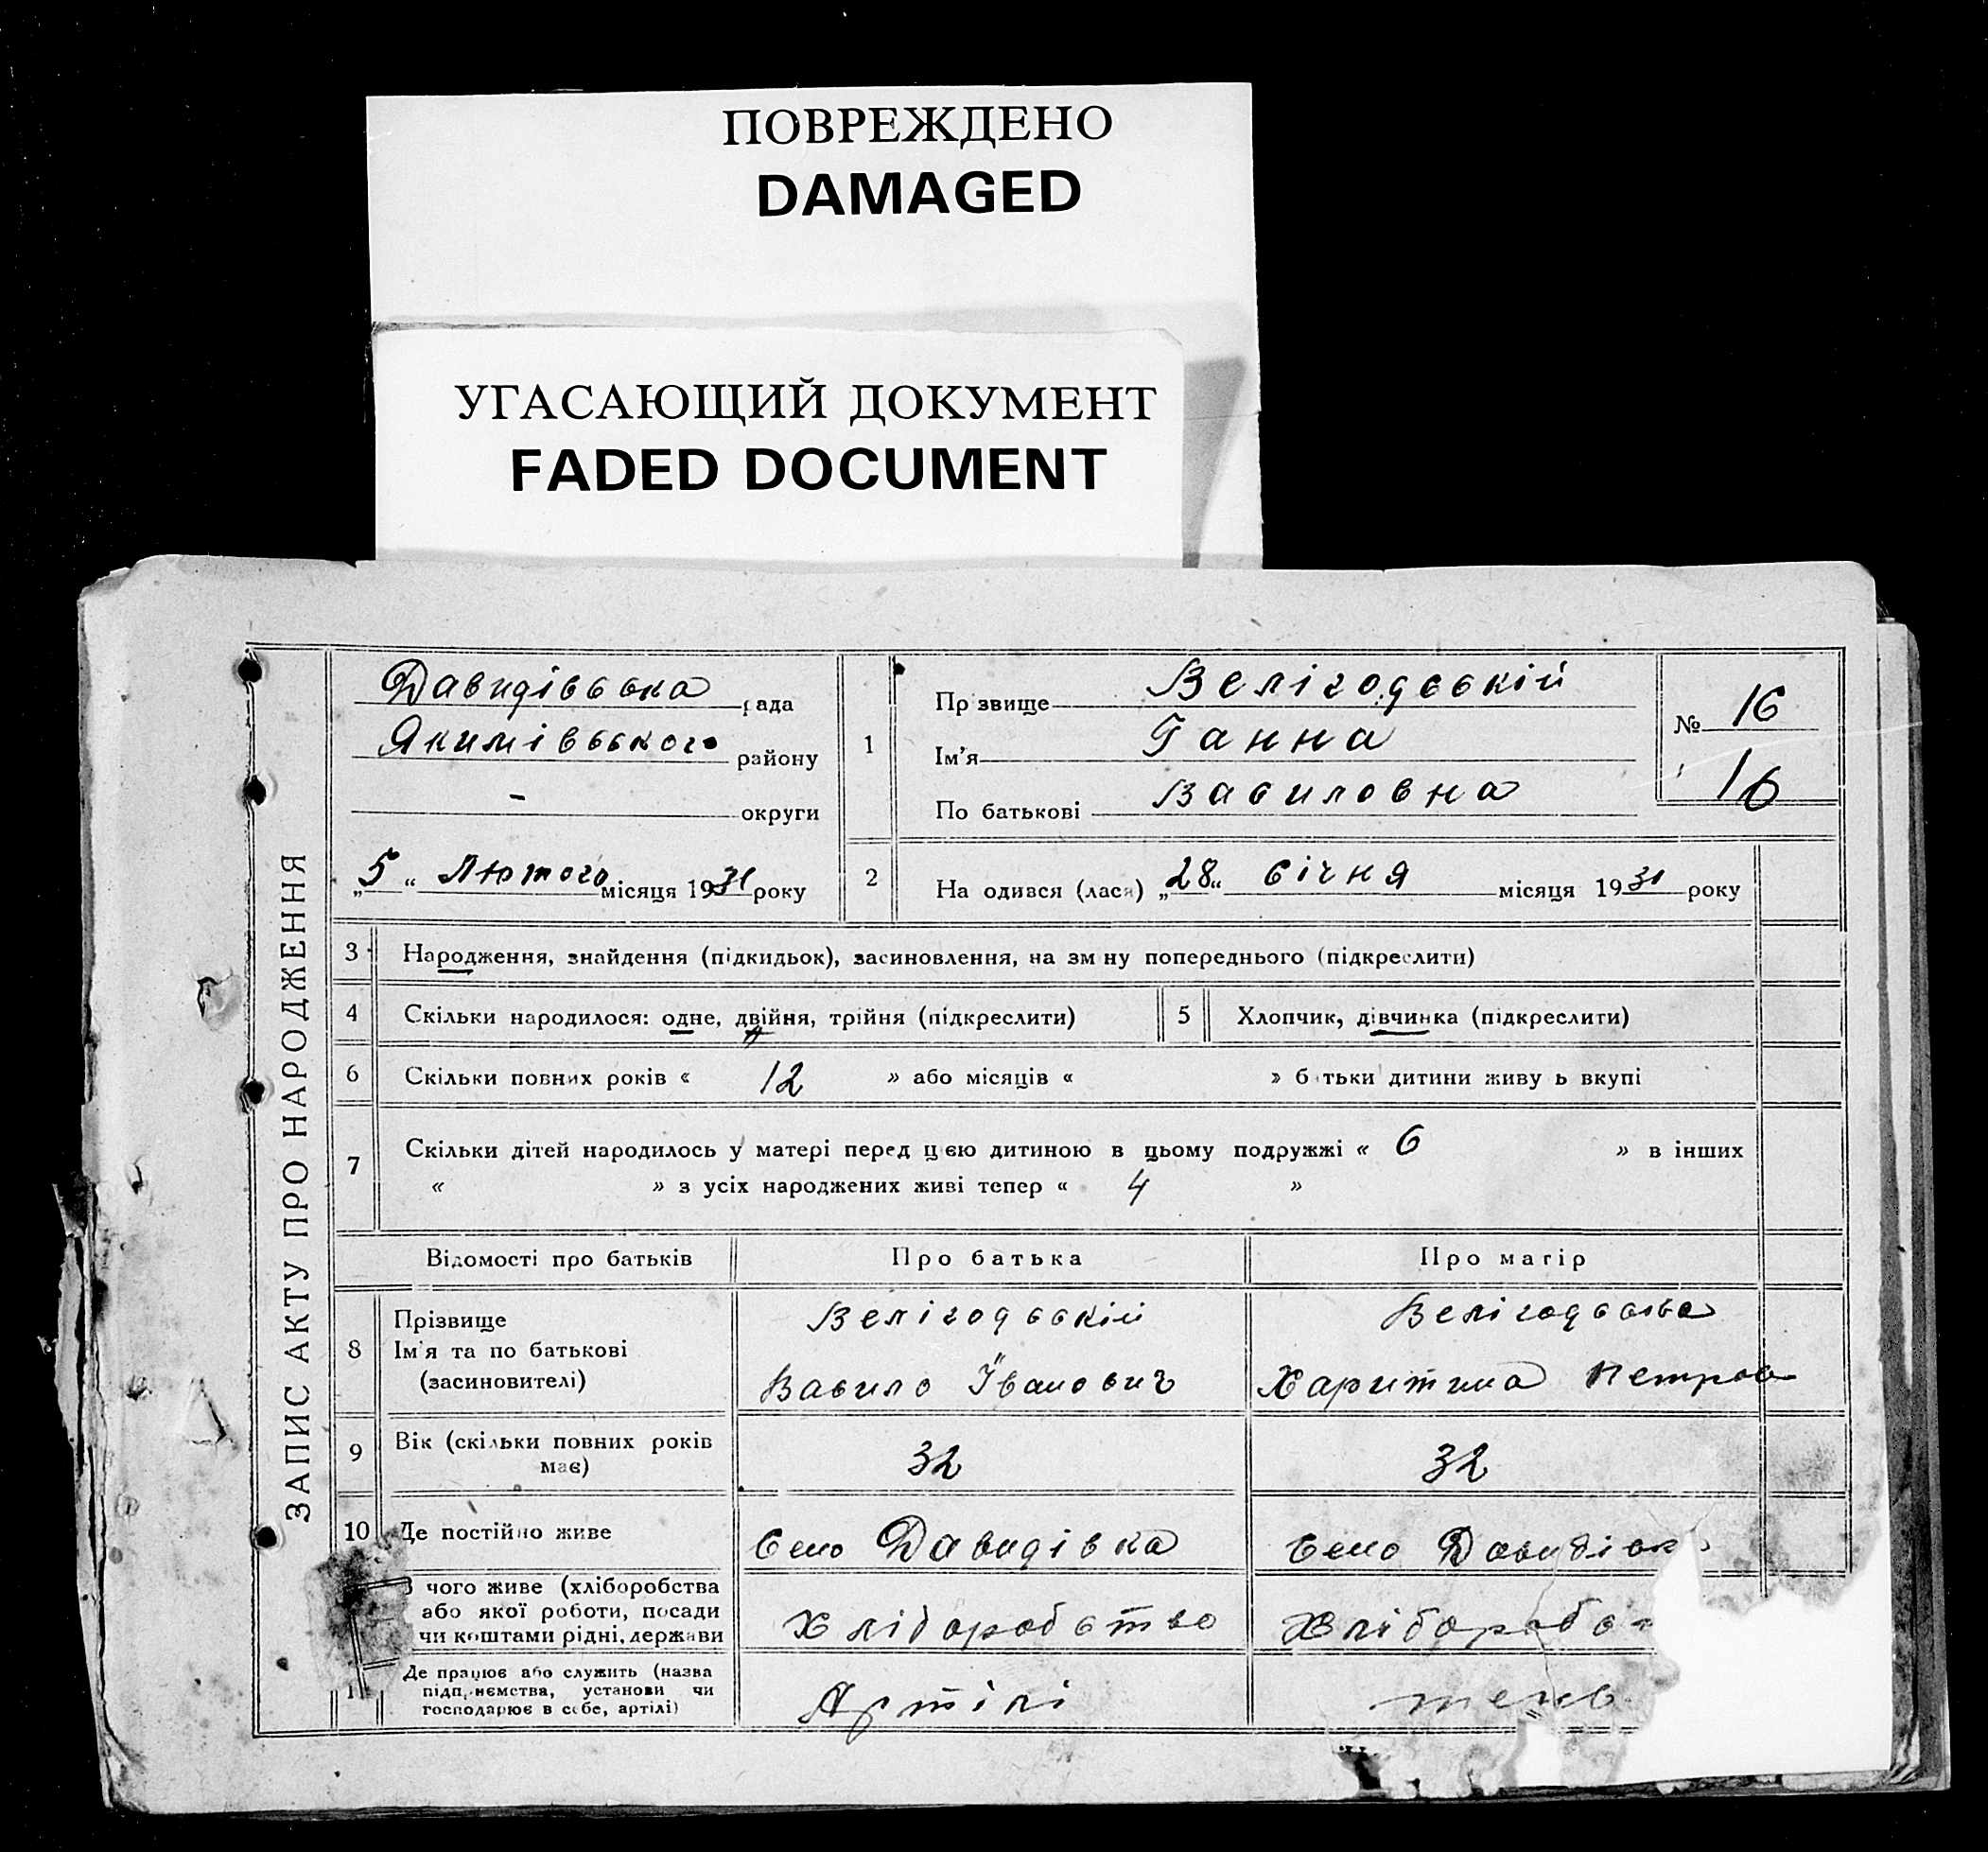 ПОВРЕЖДЕНО
DAMAGED
УГАСАЮЩИЙ ДОКУМЕНТ
FADED DOCUMENT
ЗАПИС АКТУ ПРО НАРОДЖЕННЯ
Давидівська рада
Якимівського району
- округи
„5“ Лютого місяця 1931 року
1
Пр звище Велігодський
Ім'я Ганна
По батькові Вавиловна
№ 16
16
2 На одився (лася) „28“ Січня місяця 1931 року
3 Народження, знайдення (підкидьок), засиновлення, на зм ну попереднього (підкреслити)
4 Скільки народилося: одне, двійня, трійня (підкреслити)
5 Хлопчик, дівчинка (підкреслити)
6 Скільки повних років « 12 » або місяців « » б тьки дитини живу ь вкупі
7 Скільки дітей народилось у матері перед цєю дитиною в цьому подружжі « 6 » в інших
« » з усіх народжених живі тепер « 4 »
Відомості про батьків Про батька Про матір
8 Прізвище
Ім'я та по батькові
(засиновителі)
Велігодській
Вавило Іванович
Велігодська
Харитина Петров
9 Вік (скільки повних років
має)
32 32
10 Де постійно живе Село Давидівка Село Давидівк
З чого живе (хліборобства
або якої роботи, посади
чи коштами рідні, держави
Хліборобство Хліборобст
Де працює або служить (назва
підпр.ємства, установи чи
господарює в себе, артілі)
Артілі